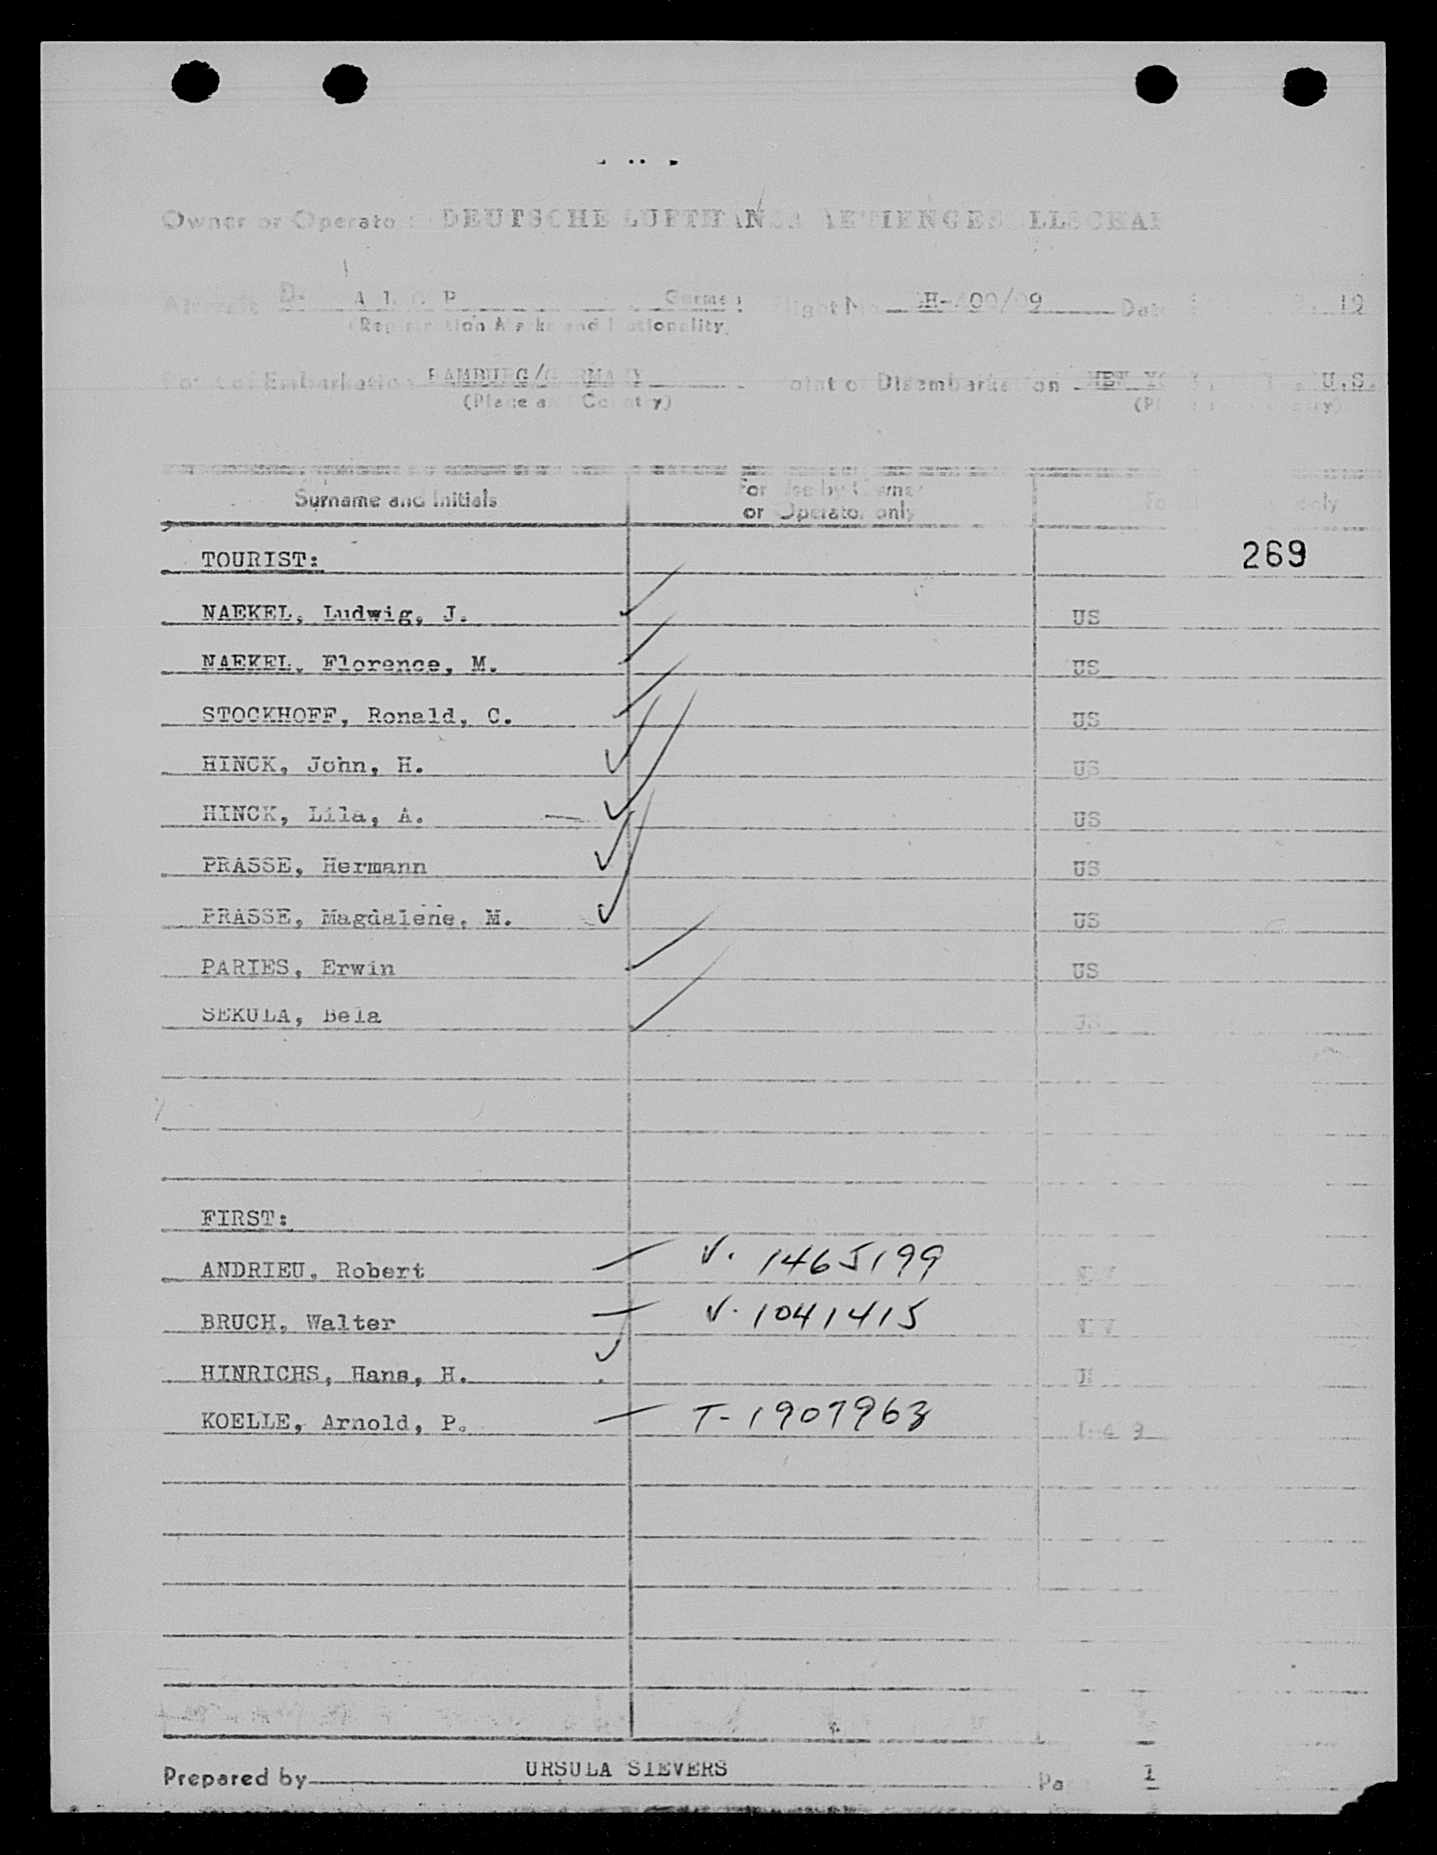 Owner or Operator: DEUTSCHE LUFTHANSA AKTIENGESELLSCHAF
Aircraft D- German Flight No. LH- Date 19
(Registration Marks and Nationality)
Point of Embarkation HAMBURG/GERMANY Point of Disembarkation NEW YO U.S.
(Place and Country) (Place and Country)
Surname and Initials For Use by Owner or Operator only only
TOURIST: 269
NAEKEL, Ludwig, J. US
NAEKEL, Florence, M. US
STOCKHOFF, Ronald, C. US
HINCK, John, H. US
HINCK, Lila, A. US
PRASSE, Hermann US
PRASSE, Magdalene, M. US
PARIES, Erwin US
SEKULA, Bela US
FIRST:
ANDRIEU, Robert V. 1465199
BRUCH, Walter V. 1041415
HINRICHS, Hans, H.
KOELLE, Arnold, P. T-1907963
Prepared by URSULA SIEVERS Pa 1